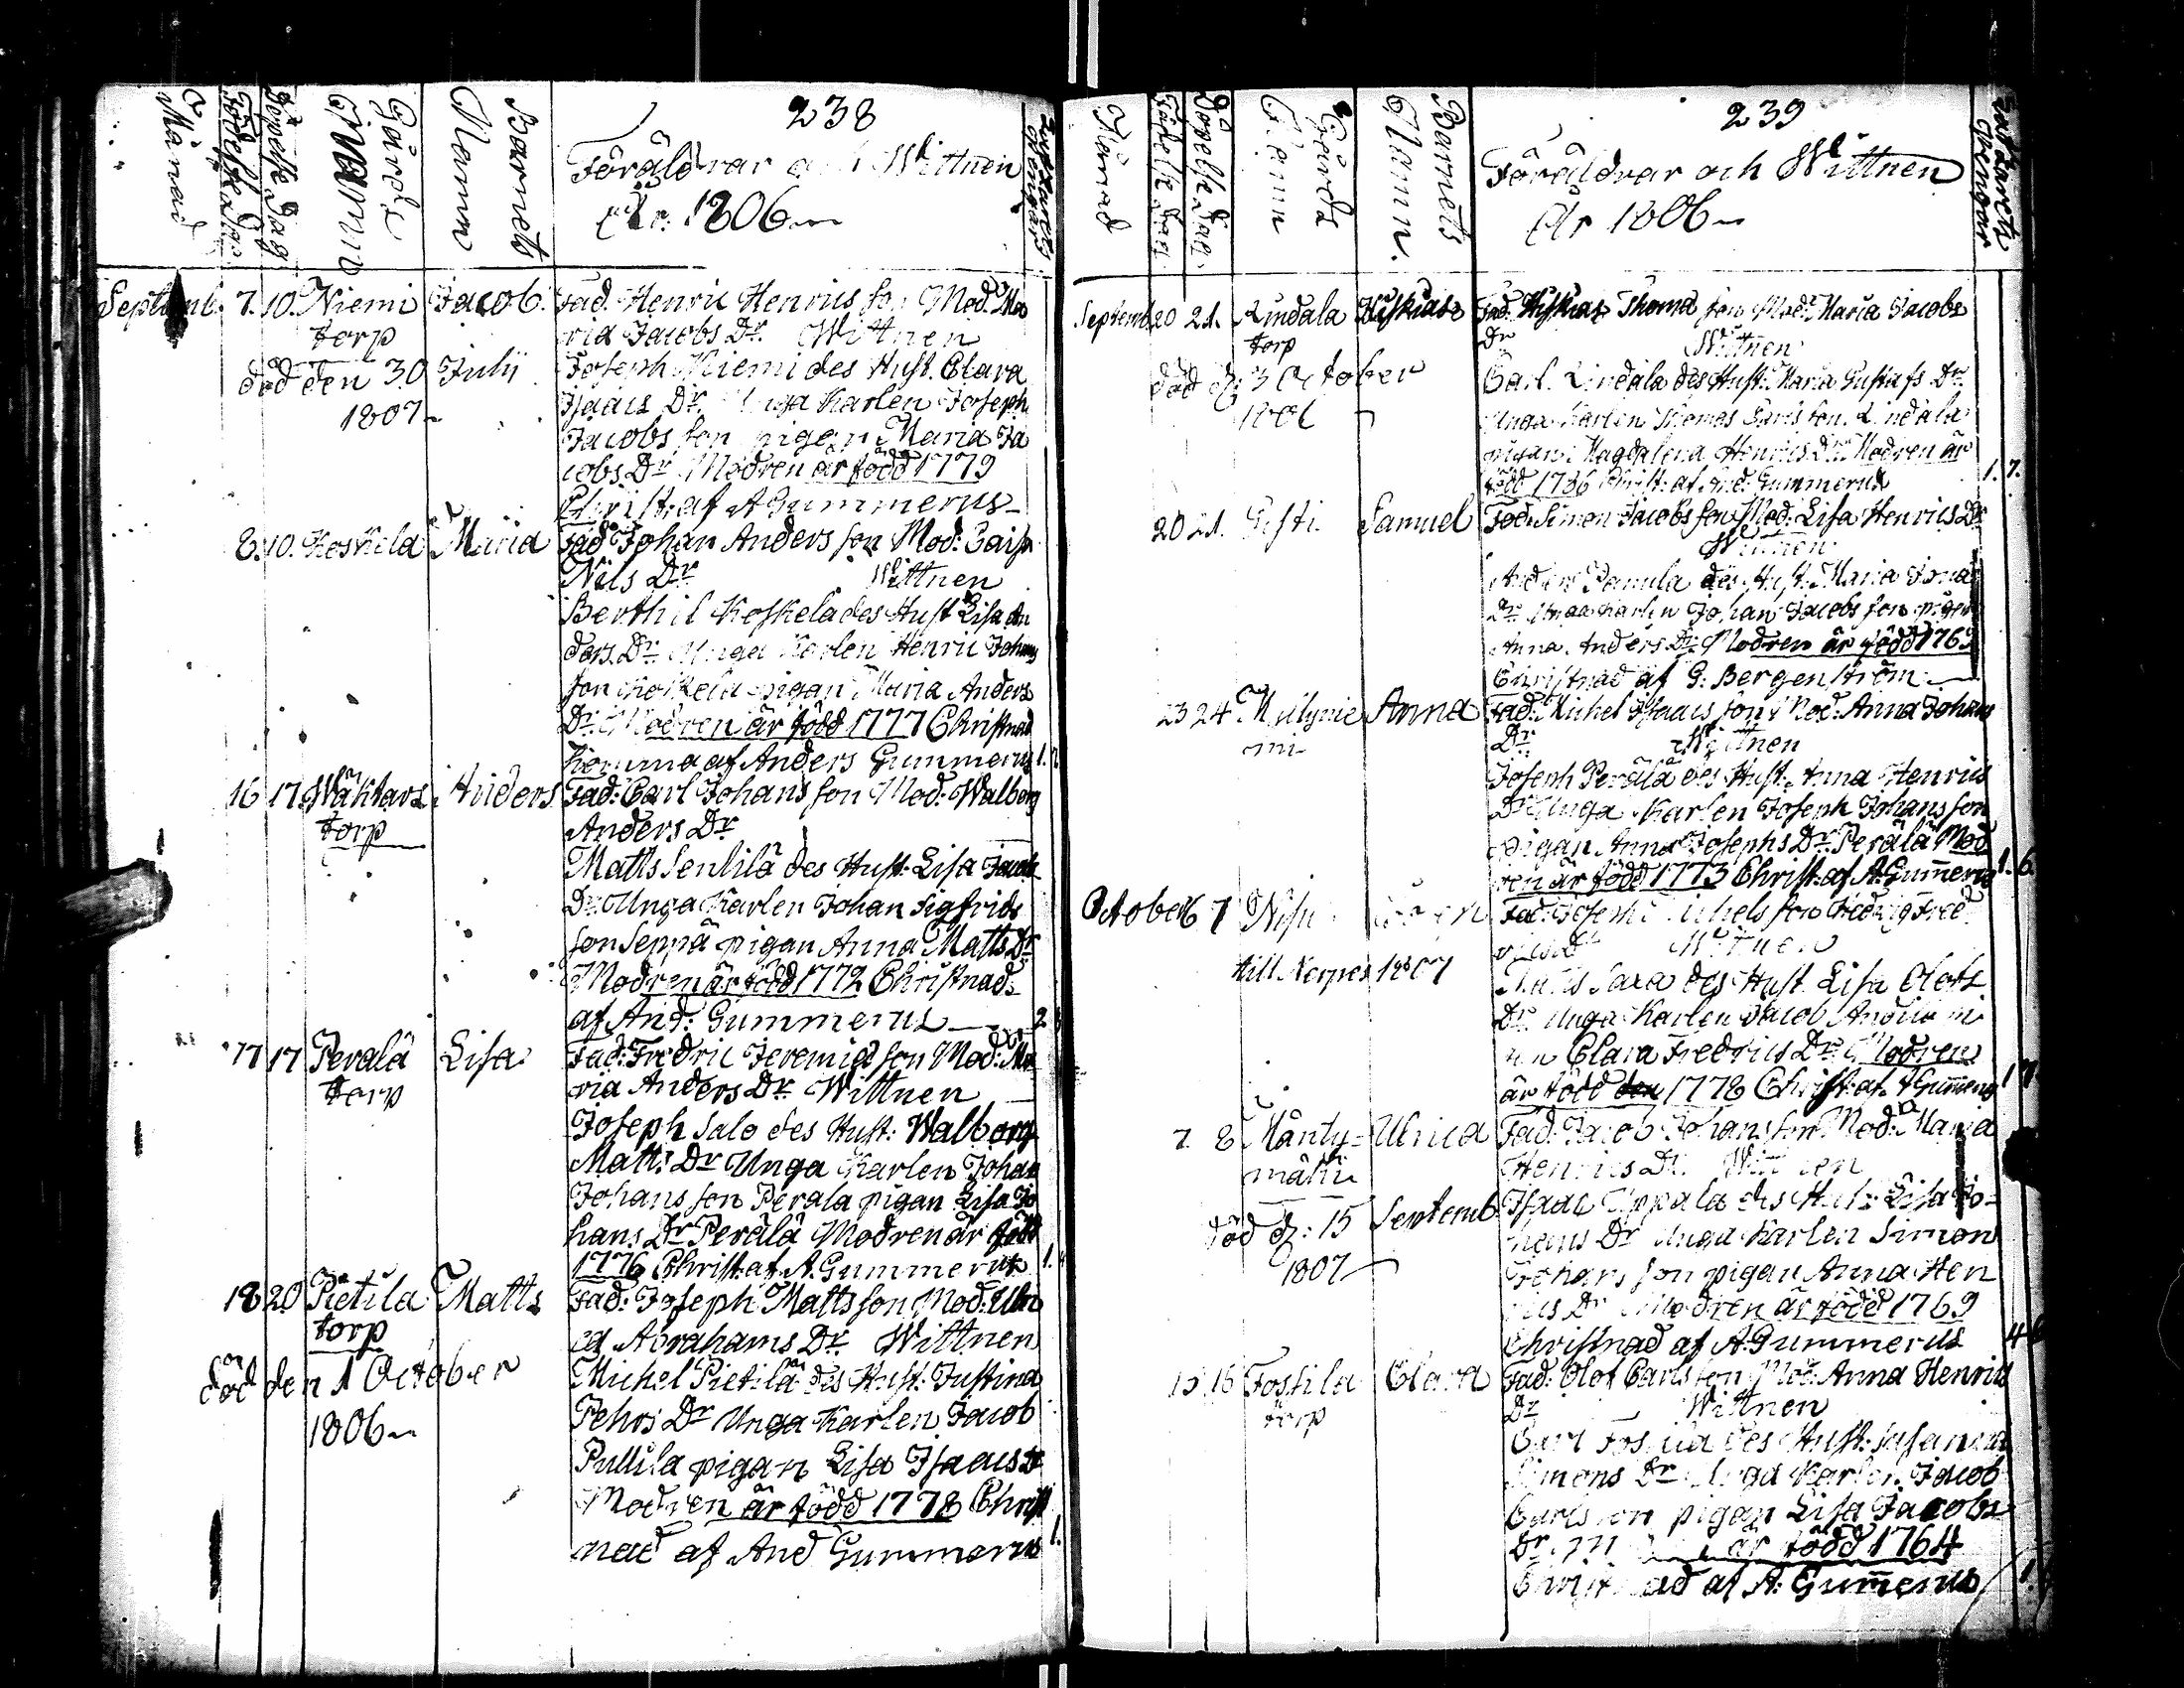 238
Månad
Födelse Dag
Döpelse Dag
Gårds Namn
Barnets Namn
Föräldrar och Wittnen
År 1806
Septemb. 7. 10. Niemi Jacob. Fad. Henric Henrics son Mod. Ma
torp ria Jacobs Dr. Wittnen
död den 30 Julij Joseph Niemi des Hust. Clara
1807 Isaacs Dr. Unga Karlen Joseph
Jacobs son pigan Maria Ja
cobs Dr. Modren är född 1779
Christ. af A Gummerus
8. 10. Koskela Maria Fad. Johan Anders son Mod: Caisa
Nils Dr. Wittnen
Berthil Koskela des Hust Lisa An
ders Dr. Unga Karlen Henric Johans
son Koskela pigan Maria Anders
Dr. Modren är född 1777 Christnad
hemma af Anders Gummerus 1.
16 17 Wäktars Anders Fad: Carl Johans son Mod: Walborg
torp Anders Dr
Matts Senlilä des Hust: Lisa Jacobs
Dr. Unga Karlen Johan Sigfrids
son Seppä pigan Anna Matts Dr
Modren är född 1772 Christnad
af And: Gummerus 2
17 17 Perälä Lisa Fad: Fredric Jeremia son Mod: Ma
torp ria Anders Dr. Wittnen
Joseph Salo des Hust: Walborg
Matts Dr Unga Karlen Johan
Johans son Perala pigan Lisa Jo
hans Dr Perälä Modren är född
1776 Christ. af A. Gummerus 1.
18 20 Pietila Matts Fad: Joseph Matts son Mod: Ulri
torp ca Abrahams Dr. Wittnen
död den 1 October Michel Pietilä des Hust: Justina
1806 Pehrs Dr Unga Karlen Jacob
Pullila pigan Lisa Isaacs Dr
Modren är född 1778 Christ
nad af And Gummerus 1.
239
Månad
Födelse Dag
Döpelse Dag
Gårds Namn
Barnets Namn.
Föräldrar och Wittnen
År 1806
Septemb 20 21. Lindala Hiskias Fad. Hiskias Thoma son Mod: Maria Jacobs
torp Dr Wittnen
död d. 3 October Carl Lindala des Hust: Maria Gustafs Dr.
1806 Unga Karlen Thomas Carls son Lindala
pigan Magdalena Henrics Dr. Modren är
född 1736 Christ: af And: Gummerus 1. 7.
20 21. Samuel Fad. Simon Jacobs son Mod: Lisa Henrics Dr
Wittnen
Anders Panula des Hust. Maria Jonas
Dr. Unga Karlen Johan Jacobs son pigan
Anna Anders Dr. Modren är född 1769
Christnad af G: Bergenström
23 24 Anna Fad. Michel Isaacs son Mod: Anna Johans
Dr. Wittnen
Joseph Perälä des Hust. Anna Henrics
Dr Unga Karlen Joseph Johans son
pigan Anna Josephs Dr. Perälä Mod
ren är född 1773 Christ. af A. Gummerus 1. 6.
October 6 7 Fad: Joseph Michels son Hedvig Fred
rics Dr Wittnen
till Nerpes 1807 Matts des Hust. Lisa Olofs
Dr. Unga Karlen Jacob
Clara Fredrics Dr. Modren
är född 1778 Christ: af A Gummerus 1
7 8 Mänty- Ulrica Fad. Jacob Johans son Mod: Maria
mäki Henrics Dr. Wittnen
död d: 15 Septemb Isaac Uppala des Hust: Lisa Jo-
1807 hans Dr Unga Karlen Simon
Johans son pigan Anna Hen
rics Dr Modren är född 1769
Christnad af A. Gummerus 4
15 16 Fossila Clara Fad: Olof Carls son Mod: Anna Henrics
torp Dr Wittnen
Carl Fossila des Hust: Susanna
Simons Dr Unga Karlen Jacob
Carls son pigan Lisa Jacobs
Dr. är född 1764
Christnad af A: Gummerus 1.